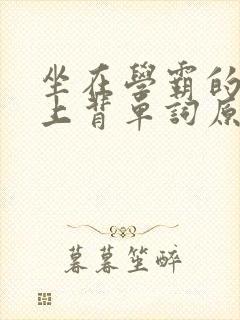 坐在學霸的
上背單詞原
暮暮笙醉